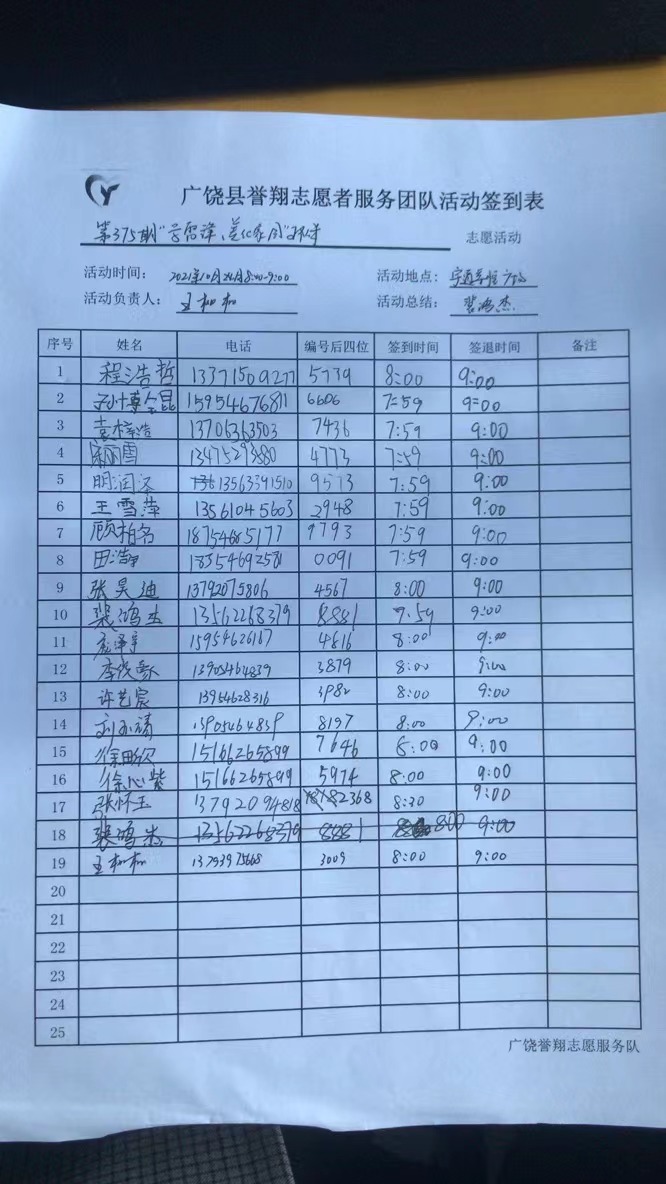 广饶县誉翔志愿者服务团队活动签到表
第375期"学雷锋、美化家园"环保 志愿活动
活动时间： 2021年10月24日8:00-9:00 活动地点：
活动负责人： 王和和 活动总结： 裴鸿杰
序号 姓名 电话 编号后四位 签到时间 签退时间 备注
1 程浩哲 13371509277 5739 8:00 9:00
2 孙博昆 15954676811 6606 7:59 9:00
3 袁梓浩 13706363503 7436 7:59 9:00
4 13475293880 4773 7:59 9:00
5 明润泽 13563391510 9573 7:59 9:00
6 王雪萍 13561045603 2948 7:59 9:00
7 顾柏名 18754685177 9793 7:59 9:00
8 田浩 0091 7:59 9:00
9 张昊迪 13792075806 4567 8:00 9:00
10 裴鸿杰 13562268379 8881 7:59 9:00
11 15954626167 4816 8:00 9:00
12 李俊 13905464839 3879 8:00 9:00
13 许艺宸 13954628316 3982 8:00 9:00
14 13905464839 8197 8:00 9:00
15 徐 15166265899 7646 8:00 9:00
16 徐心紫 15166265899 5974 8:00 9:00
17 张怀玉 13792094818 2368 8:30 9:00
18 裴鸿杰 13562268379 8881 8:00 9:00
19 王和和 13793975668 3009 8:00 9:00
20
21
22
23
24
25
广饶誉翔志愿服务队